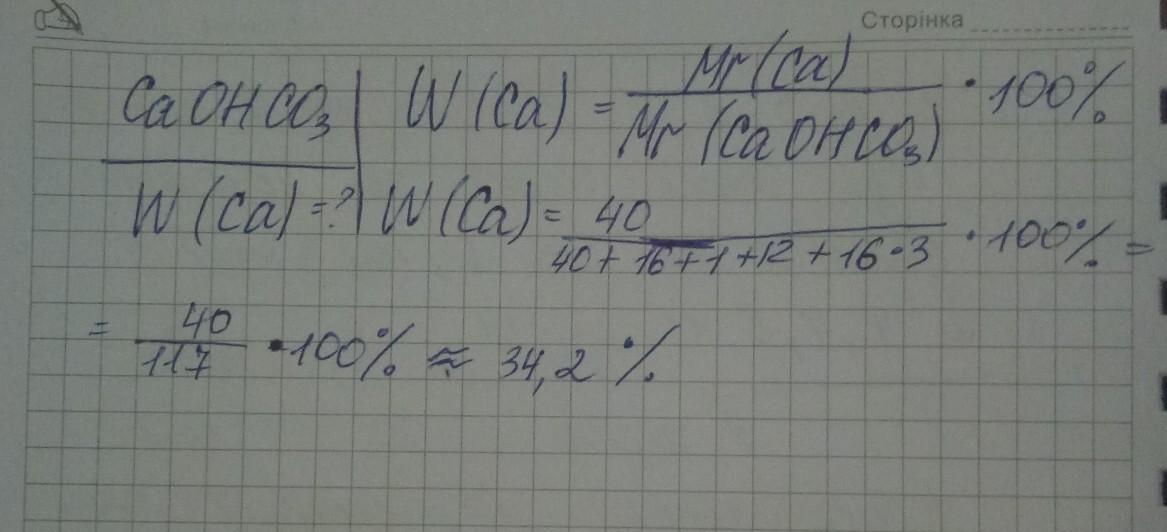 Сторінка
CaOHCO₃ | W(Ca) = Mr(Ca) / Mr(CaOHCO₃) · 100%
W(Ca)=? | W(Ca) = 40 / 40+16+1+12+16·3 · 100% =
= 40 / 117 · 100% ≈ 34,2%